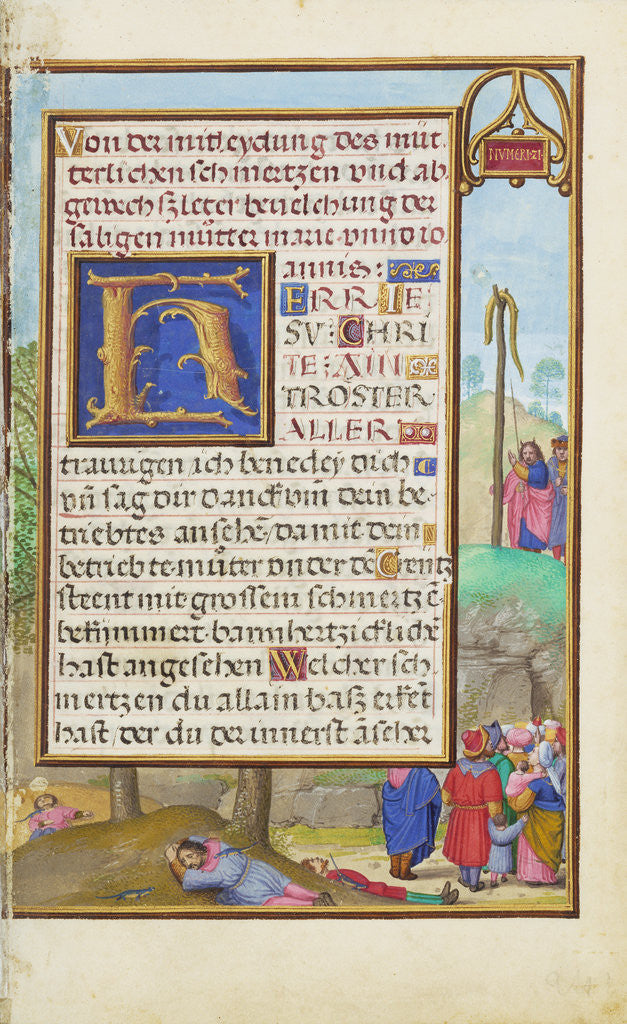 NVMERI·21·
Von der mitleydung des müt
terlichen schmertzen vnd ab
gewechszleter beuelchung der
saligen mütter marie vnnd io
annis:
H
ERR IE
SV: CHRI
TE: AIN
TROSTER
ALLER
traurigen ich benedey dich
vñ sag dir danck vm̃ dein be
triebtes ansehẽ/da mit dein
betriebte müter vnder dẽ Creütz
steent mit grossem schmertzẽ
bekümmert barmhertzicklichẽ
hast angesehen Welcher sch
mertzen du allain hasz erkẽt
hast/der du der innerst ãseher